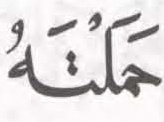 حَمَلَتْهُ